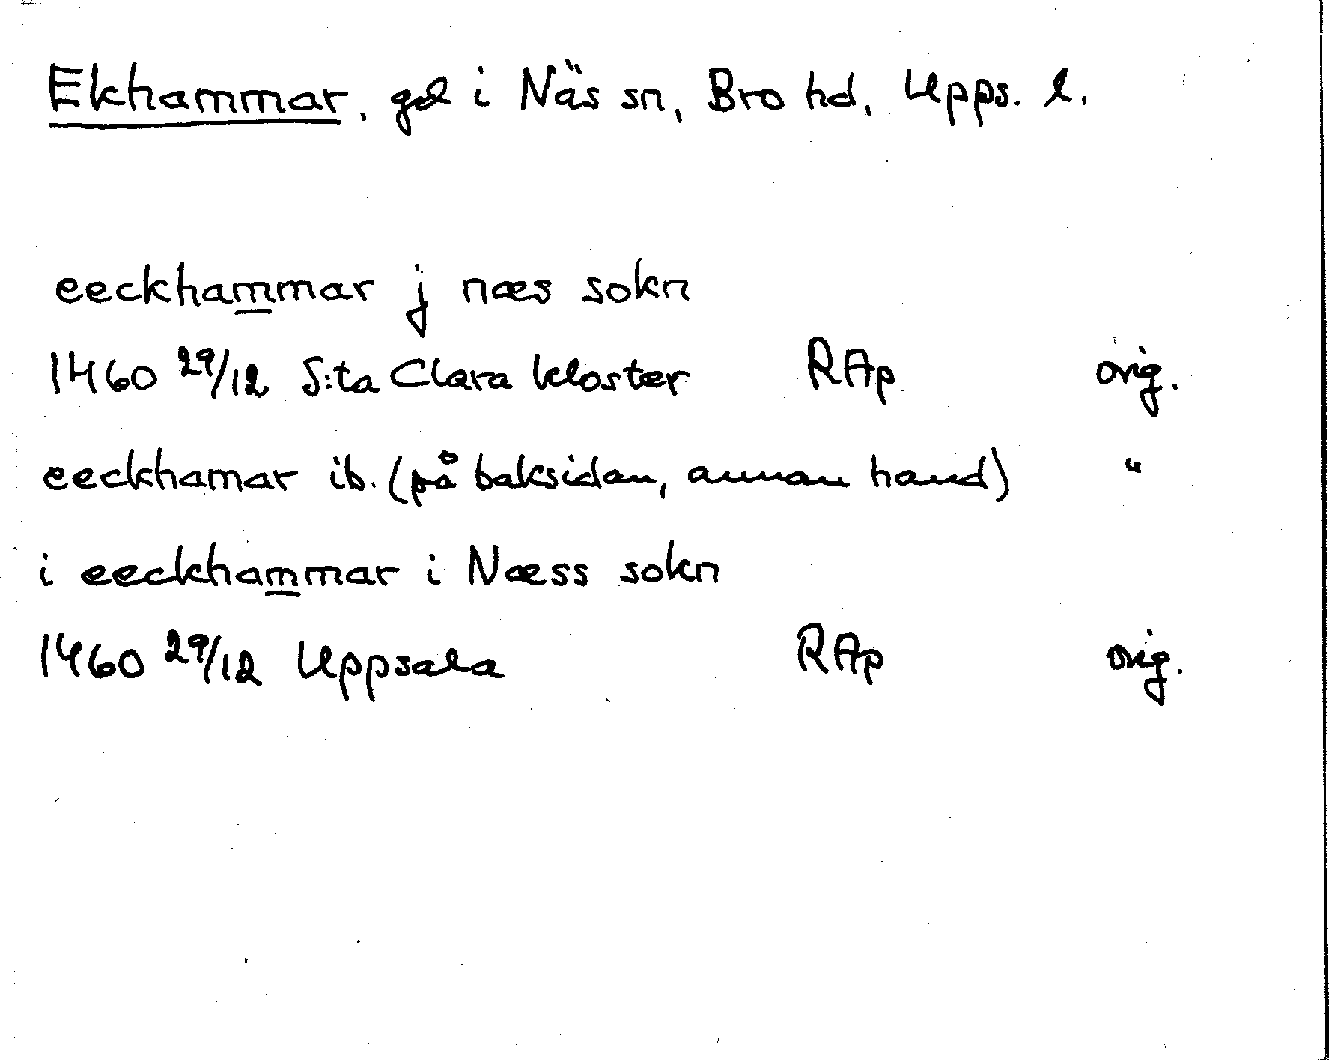 Ekhammar, gd i Näs sn, Bro hd, Upps. l.
eeckhammar j næs sokn
1460 29/12 S:ta Clara kloster RAp orig.
eeckhamar ib. (på baksidan, annan hand) "
i eeckhammar i Næss sokn
1460 29/12 Uppsala RAp orig.